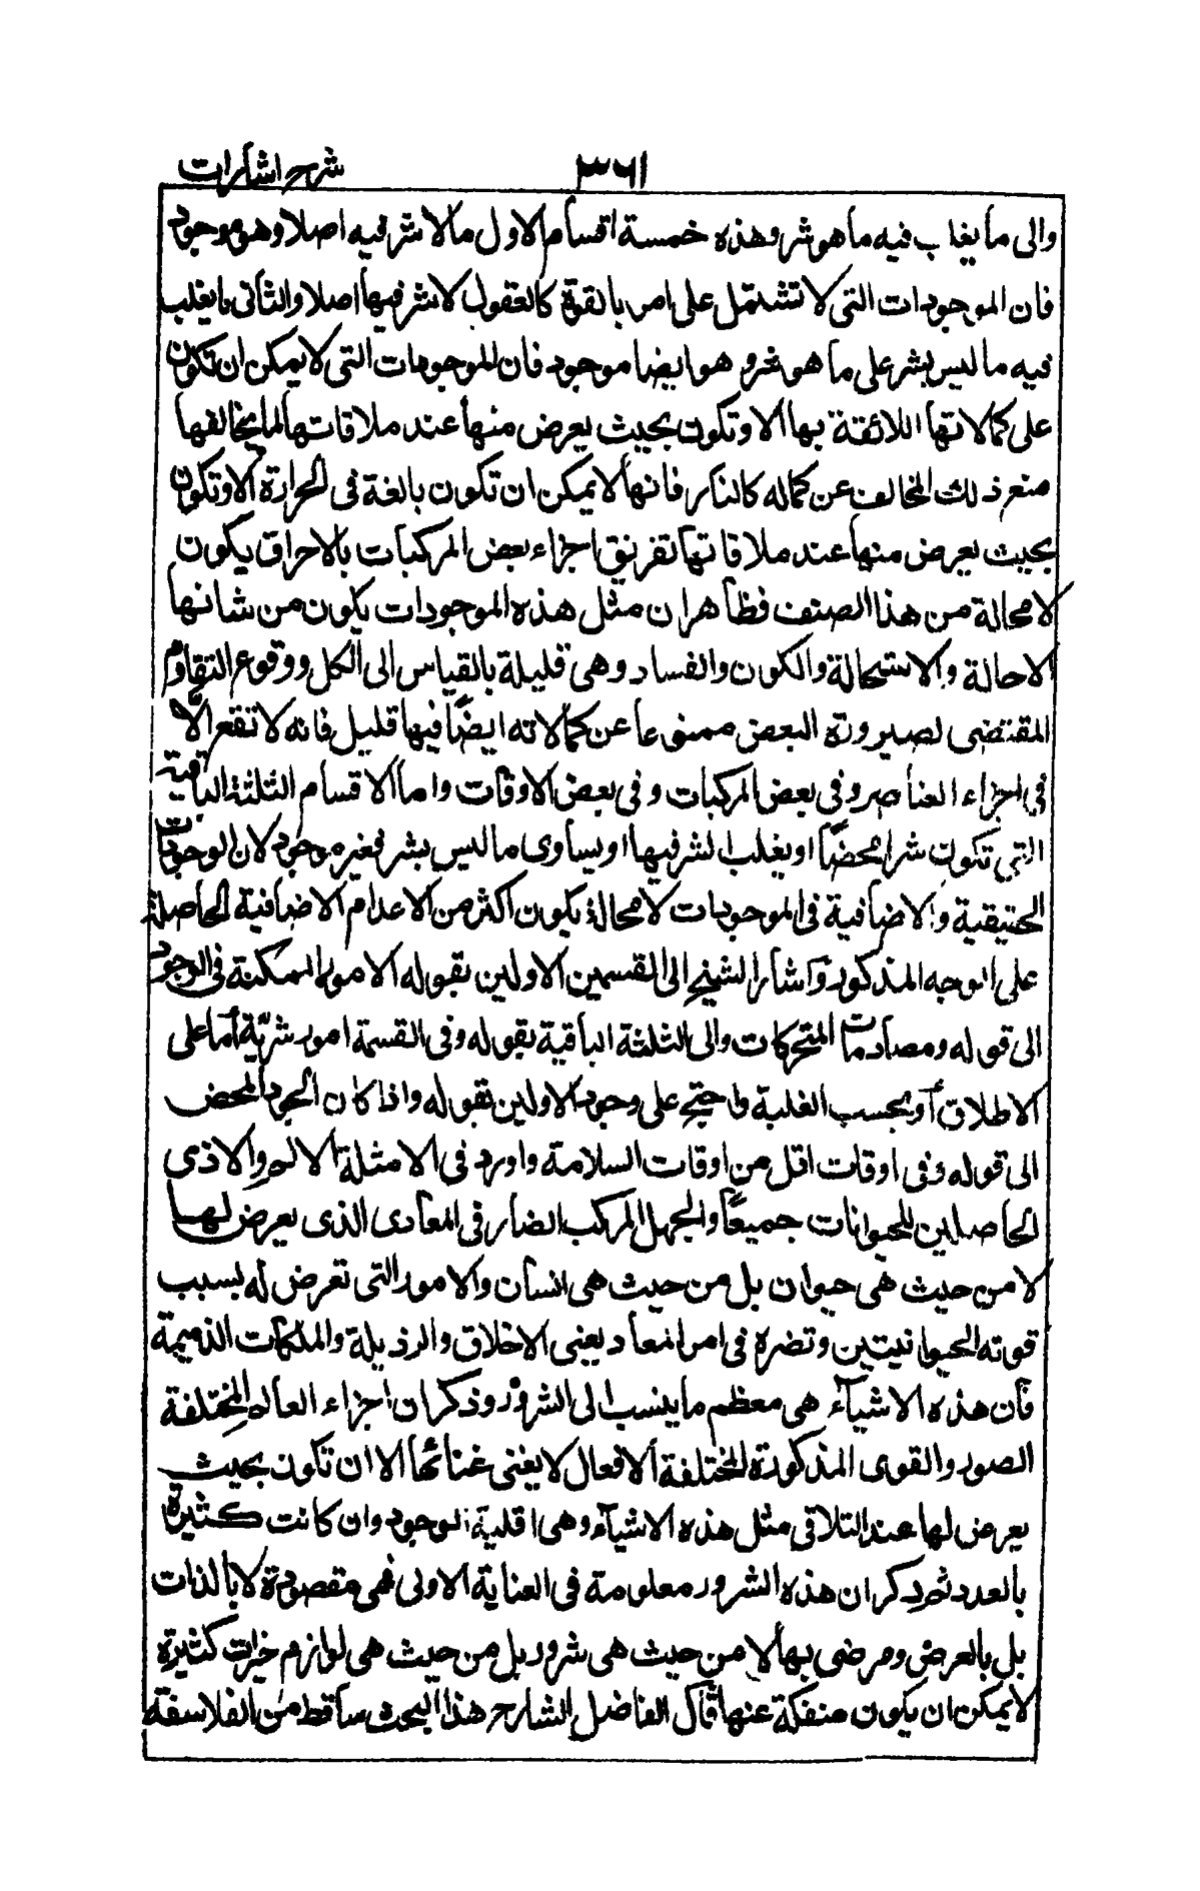 شرح اشارات
٣٦١
والى ما يغلب فيه ما هو شر وهذه خمسة اقسام الاول ما لا شر فيه اصلا وهو موجود
فان الموجودات التى لا تشتمل على امر بالقوة كالعقول لا شر فيها اصلا والثانى ما يغلب
فيه ما ليس بشر على ما هو شر وهو ايضا موجود فان الموجودات التى لا يمكن ان تكون
على كمالاتها اللائقة بها الا وتكون بحيث يعرض منها عند ملاقاتها لما يخالفها
منع ذلك المخالف عن كماله كالنار فانها لا يمكن ان تكون بالغة فى الحرارة الا وتكون
بحيث يعرض منها عند ملاقاتها تفريق اجزاء بعض المركبات بالاحراق يكون
لا محالة من هذا الصنف فظاهر ان مثل هذه الموجودات يكون من شانها
الاحالة والاستحالة والكون والفساد وهى قليلة بالقياس الى الكل ووقوع التقاوم
المقتضى لصيرورة البعض ممنوعا عن كمالاته ايضًا فيها قليل فانه لا تقع الَّا
فى اجزاء العناصر وفى بعض المركبات وفى بعض الاوقات واما الاقسام الثلثة الباقية
التى تكون شرا محضًا او يغلب الشر فيها او يساوى ما ليس بشر فغير موجود لان الوجودات
الحقيقية والاضافية فى الموجودات لا محالة يكون اكثر من الاعدام الاضافية الحاصلة
على الوجه المذكور واشار الشيخ الى القسمين الاولين بقوله الامور الممكنة فى الوجود
الى قوله ومصادمات المتحركات والى الثلثة الباقية بقوله وفى القسمة امور شرّيّة أما على
الاطلاق أو بحسب الغلبة واحتج على وجود الاولين بقوله واذا كان الجود المحض
الى قوله وفى اوقات اقل من اوقات السلامة واورد فى الامثلة الالم والاذى
الحاصلين للحيوانات جميعًا والجهل المركب الضار فى المعاد الذى يعرض لها
لا من حيث هى حيوان بل من حيث هى انسان والامور التى تعرض له بسبب
قوته الحيوانيتين وتضره فى امر المعاد يعنى الاخلاق والرذيلة والملكات الذميمة
فان هذه الاشياء هى معظم ما ينسب الى الشرور وذكر ان اجزاء العالم المختلفة
الصور والقوى المذكورة المختلفة الافعال لا يغنى غنائها الا ان تكون بحيث
يعرض لها عند التلاقى مثل هذه الاشياء وهى اقلية الوجود وان كانت كثيرة
بالعدد ثم ذكر ان هذه الشرور معلومة فى العناية الاولى فهى مقصودة لا بالذات
بل بالعرض ومرضى بها لا من حيث هى شرور بل من حيث هى لوازم خيرات كثيرة
لا يمكن ان يكون منفكة عنها قال الفاضل الشارح هذا البحث ساقط من الفلاسفة